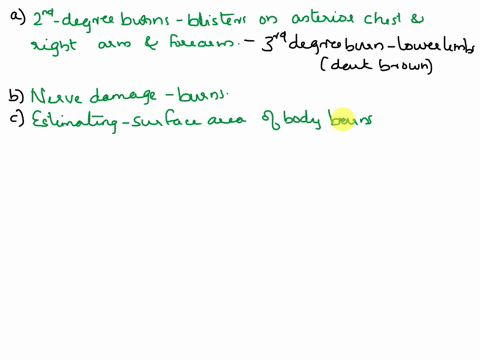 a) 2nd-degree burns - blisters on anterior chest &
right arm & forearm. - 3rd degree burn - lower limbs
(dark brown)
b) Nerve damage - burns.
c) Estimating - surface area of body burns